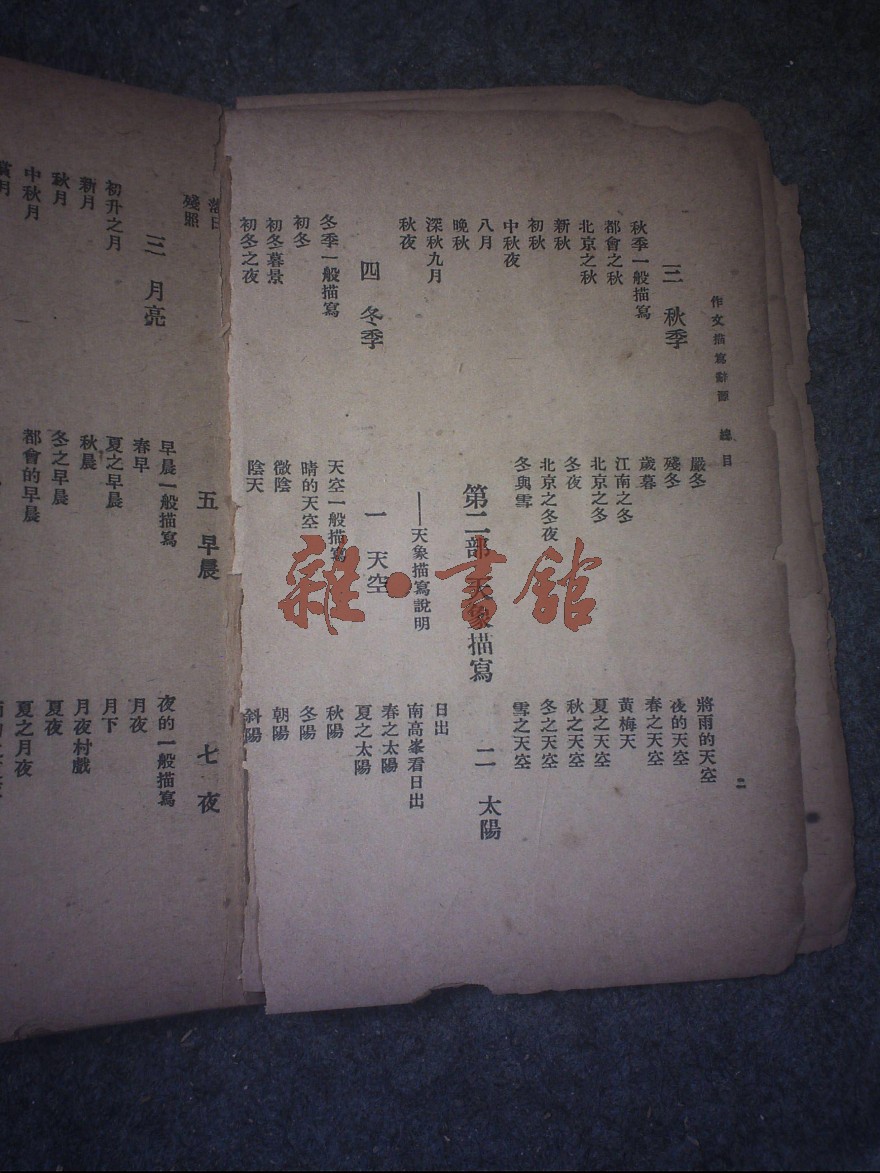 作文描寫辭源 總目
二
三 秋季
秋季一般描寫
都會之秋
北京之秋
新秋
初秋
中秋夜
八月
晚秋
深秋九月
秋夜
四 冬季
冬季一般描寫
初冬
初冬暮景
初冬之夜
嚴冬
殘冬
歲暮
江南之冬
北京之冬
冬夜
北京之冬夜
冬與雪
第二部 天象描寫
——天象描寫說明
一 天空
天空一般描寫
晴的天空
微陰
陰天
將雨的天空
夜的天空
春之天空
黃梅天
夏之天空
秋之天空
冬之天空
雪之天空
二 太陽
日出
南高峯看日出
春之太陽
夏之太陽
秋陽
冬陽
朝陽
斜陽
落日
殘照
三 月亮
初升之月
新月
秋月
中秋月
賞月
五 早晨
早晨一般描寫
春早
夏之早晨
秋晨
冬之早晨
都會的早晨
七 夜
夜的一般描寫
月夜
月下
月夜村戲
夏夜
夏之月夜
雜·書館